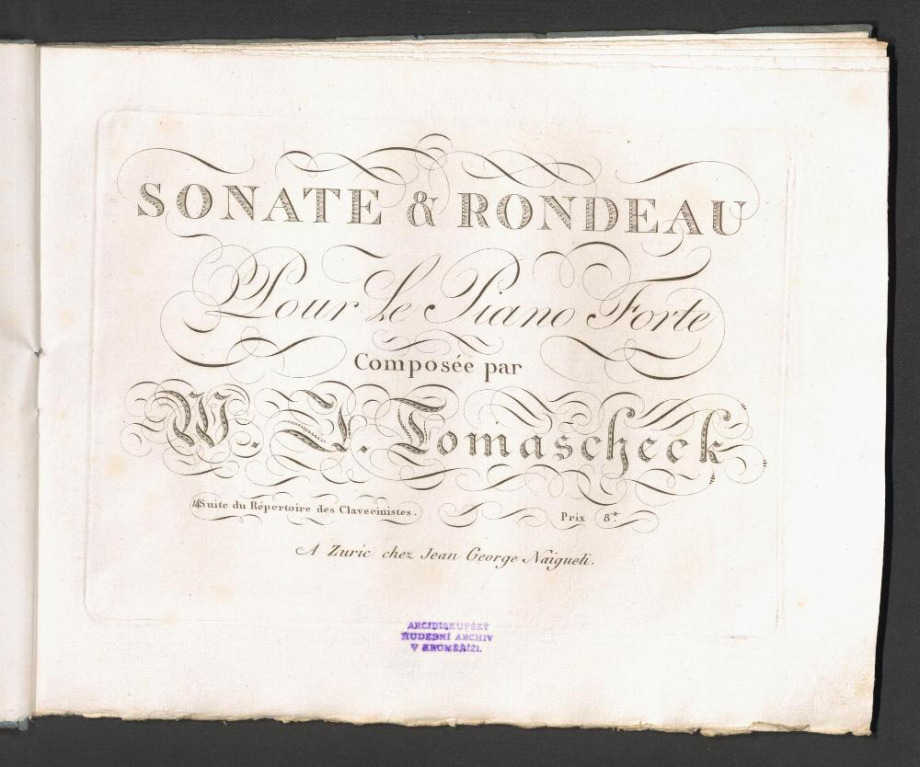 SONATE & RONDEAU
Pour Le Piano Forte
Composée par
W. I. Tomascheck
14 Suite du Répertoire des Clavecinistes.
Prix 8
A Zuric chez Jean George Naigueli.
ARCIBISKUPSKÝ
HUDEBNÍ ARCHIV
V KROMĚŘÍŽI.